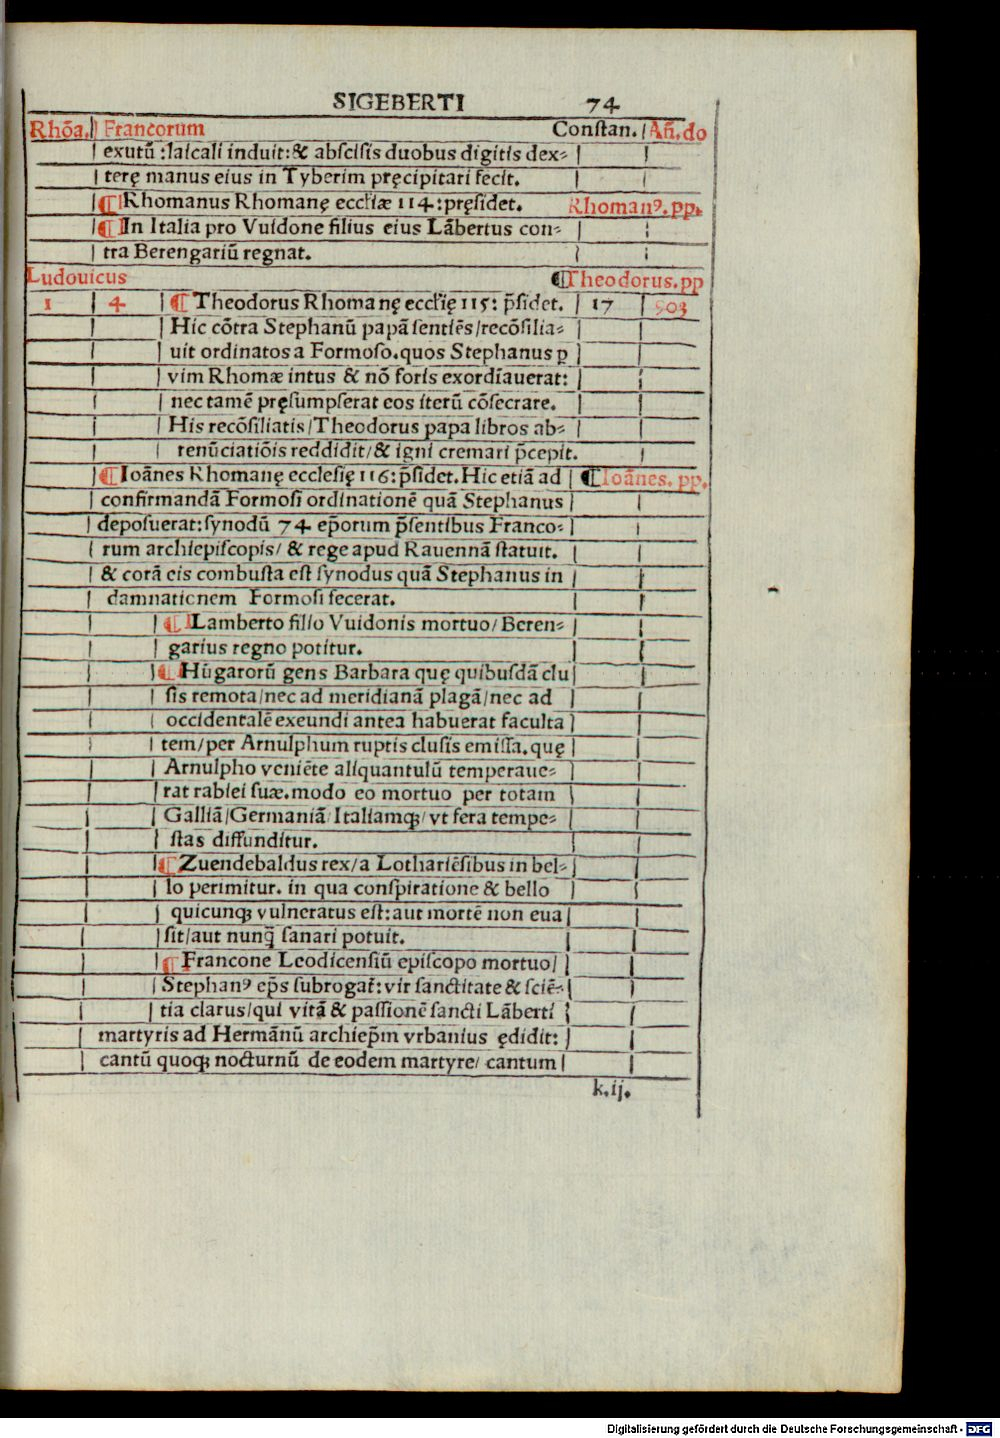 SIGEBERTI 74
Rhōa. Francorum Conſtan. An̄.do
exutū :laicali induit:& abſciſis duobus digitis dex⸗
terę manus eius in Tyberim pręcipitari fecit.
¶Rhomanus Rhomanę eccłiæ 114:pręſidet. Rhomanꝰ.pp.
¶In Italia pro Vuidone filius eius Lābertus con⸗
tra Berengariū regnat.
Ludouicus ¶Theodorus.pp
1 4 ¶Theodorus Rhomanę eccłię 115: p̄ſidet. 17 903
Hic cōtra Stephanū papā ſentiēs/recōſilia⸗
uit ordinatos a Formoſo.quos Stephanus ꝑ
vim Rhomæ intus & nō foris exordīauerat:
nec tamē pręſumpſerat eos iterū cōſecrare.
His recōſiliatis/Theodorus papa libros ab⸗
renūciatiōis reddidit/& igni cremari p̄cepit.
¶Ioānes Rhomanę eccleſię 116: p̄ſidet.Hic etiā ad ¶Ioānes. pp.
confirmandā Formoſi ordinationē quā Stephanus
depoſuerat:ſynodū 74 ep̄orum p̄ſentibus Franco⸗
rum archiepiſcopis/ & rege apud Rauennā ſtatuit.
& corā eis combuſta eſt ſynodus quā Stephanus in
damnationem Formoſi fecerat.
¶Lamberto filio Vuidonis mortuo/ Beren⸗
garius regno potitur.
¶Hūgarorū gens Barbara quę quibuſdā clu
ſis remota/nec ad meridianā plagā/nec ad
occidentalē exeundi antea habuerat faculta
tem/per Arnulphum ruptis cluſis emiſſa.quę
Arnulpho veniēte aliquantulū temperaue⸗
rat rabiei ſuæ.modo eo mortuo per totam
Galliā/Germaniā/Italiamqȝ/vt fera tempe⸗
ſtas diffunditur.
¶Zuendebaldus rex/a Lothariēſibus in bel⸗
lo perimitur. in qua conſpiratione & bello
quicunqȝ vulneratus eſt:aut mortē non eua
ſit/aut nunq̄ ſanari potuit.
¶Francone Leodicenſiū epiſcopo mortuo/
Stephanꝰ ep̄s ſubrogat̄:vir ſanctitate & ſciē⸗
tia clarus/qui vitā & paſſionē ſancti Lāberti
martyris ad Hermānū archiep̄m vrbanius ędidit:
cantū quoqȝ nocturnū de eodem martyre/ cantum
k.ij.
Digitalisierung gefördert durch die Deutsche Forschungsgemeinschaft - DFG